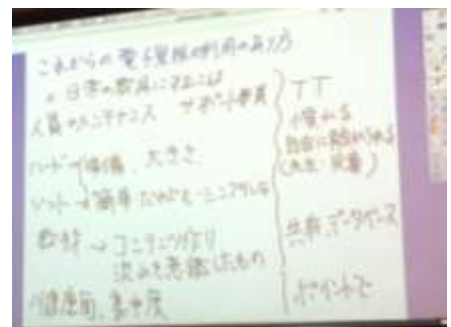 これからの電子黒板の利用のあり方
。日常の教具にするには
人員 メンテナンス サポート要員
ハード→準備、大きさ
ソフト→簡単
教材→コンテンツ作り
流れを意識したもの
健康面、集中度
TT
慣れる
自由に触れられる
(先生・児童)
共有データベース
ポイントで